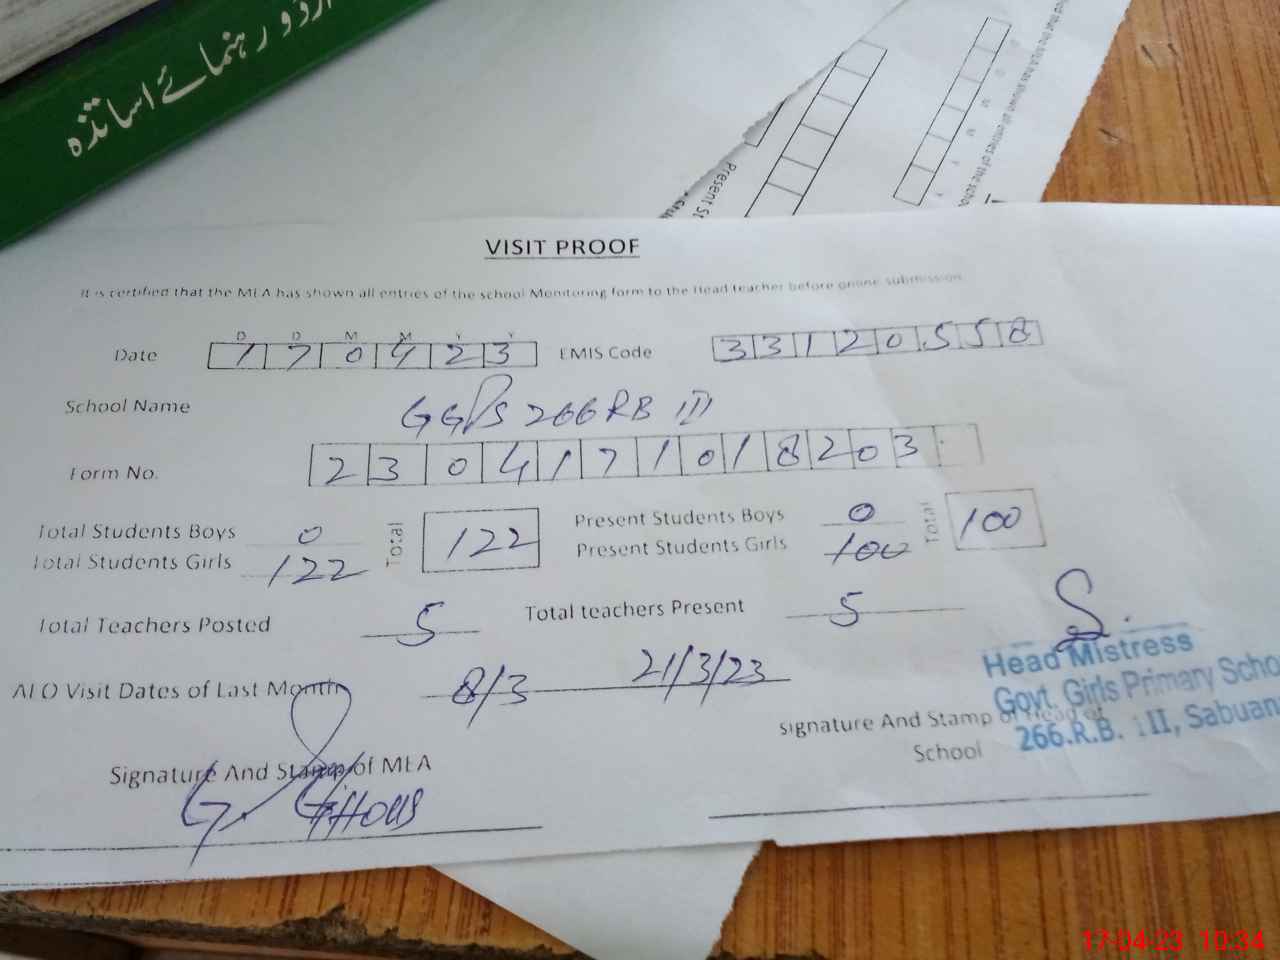 اردو رہنمائے اساتذہ
Present St
VISIT PROOF
It is certified that the MEA has shown all entries of the school Monitoring form to the Head teacher before online submission.
D D M M Y Y
Date 1 7 0 4 2 3 EMIS Code 3 3 1 2 0 5 5 8
School Name GGPS 266 RB III
Form No. 2 3 0 4 1 7 1 0 1 8 2 0 3
Total Students Boys 0 Total 122 Present Students Boys 0 Total 100
Total Students Girls 122 Present Students Girls 100
Total Teachers Posted 5 Total teachers Present 5
AEO Visit Dates of Last Month 8/3 21/3/23
Head Mistress
Govt. Girls Primary Schoo
266.R.B. III, Sabuan
Signature And Stamp of Head of
School
Signature And Stamp of MEA
17-04-23 10:34